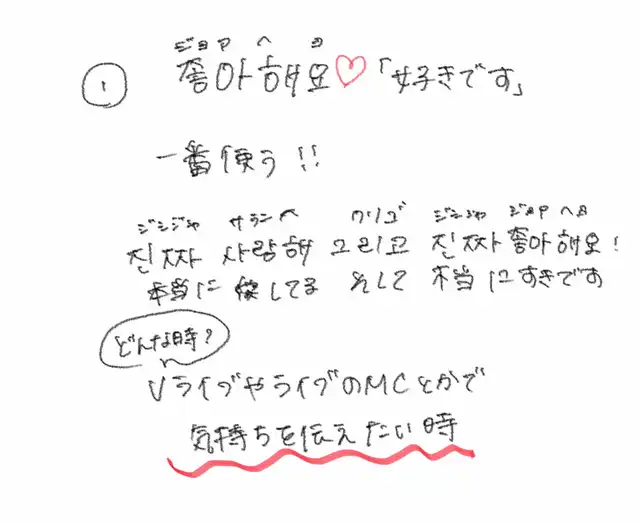 ジョア ヘ ヨ
① 좋아해요♡「好きです」
一番使う!!
ジンジャ サランヘ クリゴ ジンジャ ジョア ヘヨ
진짜 사랑해 그리고 진짜 좋아해요!
本当に 愛してる そして 本当にすきです
どんな時?
VライブやライブのMCとかで
気持ちを伝えたい時